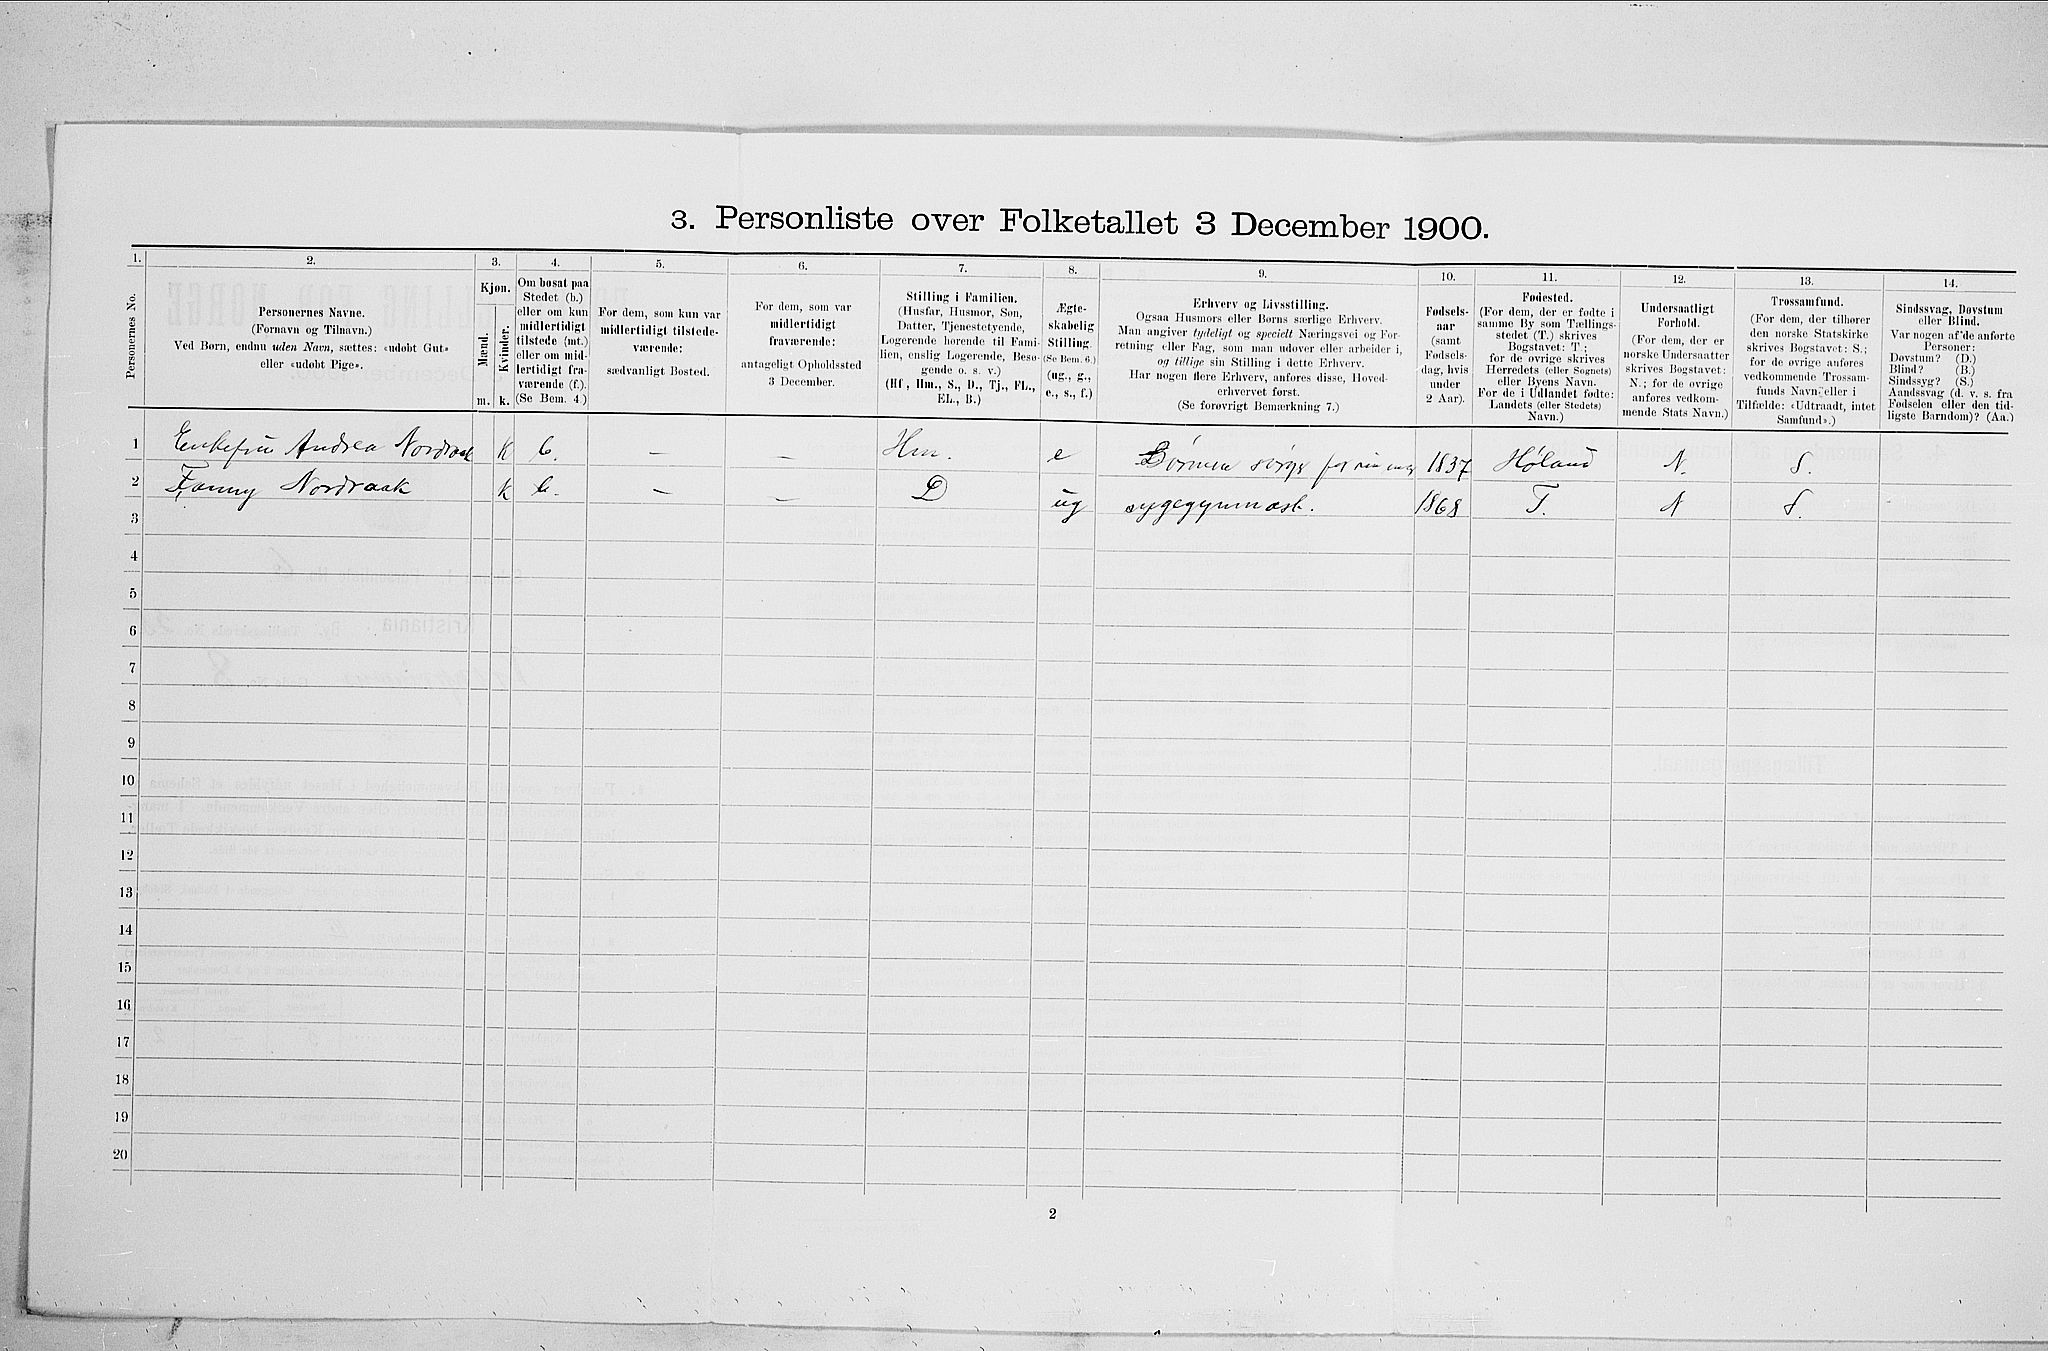 3. Personliste over Folketallet 3 December 1900.
1. 2. 3. 4. 5. 6. 7. 8. 9. 10. 11. 12. 13. 14.
Personernes No.
Personernes Navne.
(Fornavn og Tilnavn.)
Ved Børn, endnu uden Navn, sættes: «udøbt Gut»
eller «udøbt Pige».
Kjøn.
Mænd.
Kvinder.
m. k.
Om bosat paa
Stedet (b.)
eller om kun
midlertidigt
tilstede (mt.)
eller om mid-
lertidigt fra-
værende (f.).
(Se Bem. 4.)
For dem, som kun var
midlertidigt tilstede-
værende:
sædvanligt Bosted.
For dem, som var
midlertidigt
fraværende:
antageligt Opholdssted
3 December.
Stilling i Familien.
(Husfar, Husmor, Søn,
Datter, Tjenestetyende,
Logerende hørende til Fami-
lien, enslig Logerende, Besø-
gende o. s. v.)
(Hf., Hm., S., D., Tj., FL.,
EL., B.)
Ægte-
skabelig
Stilling.
(Se Bem. 6.)
(ug., g.,
e., s., f.)
Erhverv og Livsstilling.
Ogsaa Husmors eller Børns særlige Erhverv.
Man angiver tydeligt og specielt Næringsvei og For-
retning eller Fag, som man udøver eller arbeider i,
og tillige sin Stilling i dette Erhverv.
Har nogen flere Erhverv, anføres disse, Hoved-
erhvervet først.
(Se forøvrigt Bemærkning 7.)
Fødsels-
aar
(samt
Fødsels-
dag, hvis
under
2 Aar).
Fødested.
(For dem, der er fødte i
samme By som Tællings-
stedet (T.) skrives
Bogstavet: T;
for de øvrige skrives
Herredets (eller Sognets)
eller Byens Navn.
For de i Udlandet fødte:
Landets (eller Stedets)
Navn.)
Undersaatligt
Forhold.
(For dem, der er
norske Undersaatter
skrives Bogstavet:
N.; for de øvrige
anføres vedkom-
mende Stats Navn.)
Trossamfund.
(For dem, der tilhører
den norske Statskirke
skrives Bogstavet: S.;
for de øvrige anføres
vedkommende Trossam-
funds Navn eller i
Tilfælde: «Udtraadt, intet
Samfund».)
Sindssvag, Døvstum
eller Blind.
Var nogen af de anførte
Personer:
Døvstum? (D.)
Blind? (B.)
Sindssyg? (S.)
Aandssvag (d. v. s. fra
Fødselen eller den tid-
ligste Barndom)? (Aa.)
1 Enkefru Andrea Nordraak k b. – – Hm. e Børnene sørge for 1837 Høland N. S.
2 Fanny Nordraak k b. – – D ug sygegymnast. 1868 T. N S.
3
4
5
6
7
8
9
10
11
12
13
14
15
16
17
18
19
20
2